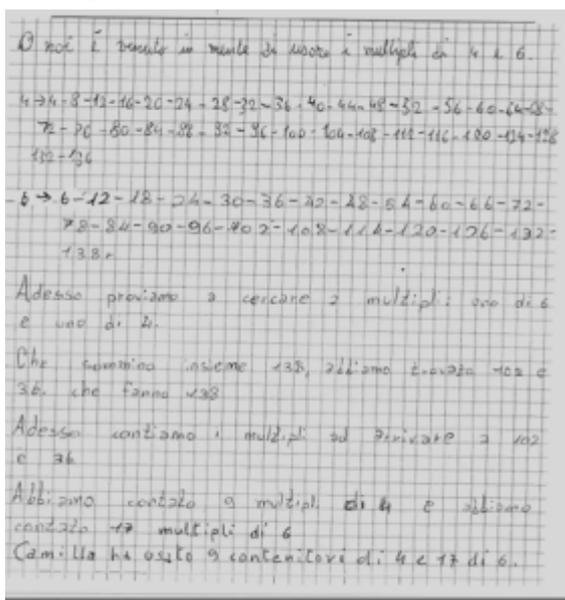 A noi è venuto in mente di usare i multipli di 4 e 6.
4→4-8-12-16-20-24-28-32-36-40-44-48-52-56-60-64-68-
72-76-80-84-88-92-96-100-104-108-112-116-120-124-128
132-136
6→6-12-18-24-30-36-42-48-54-60-66-72-
78-84-90-96-102-108-114-120-126-132-
138.
Adesso proviamo a cercare 2 multipli: uno di 6
e uno di 4.
Che sommino insieme 138, abbiamo trovato 102 e
36. che fanno 138
Adesso contiamo i multipli ad arrivare a 102
e 36
Abbiamo contato 9 multipli di 4 e abbiamo
contato 17 multipli di 6
Camilla ha usato 9 contenitori di 4 e 17 di 6.